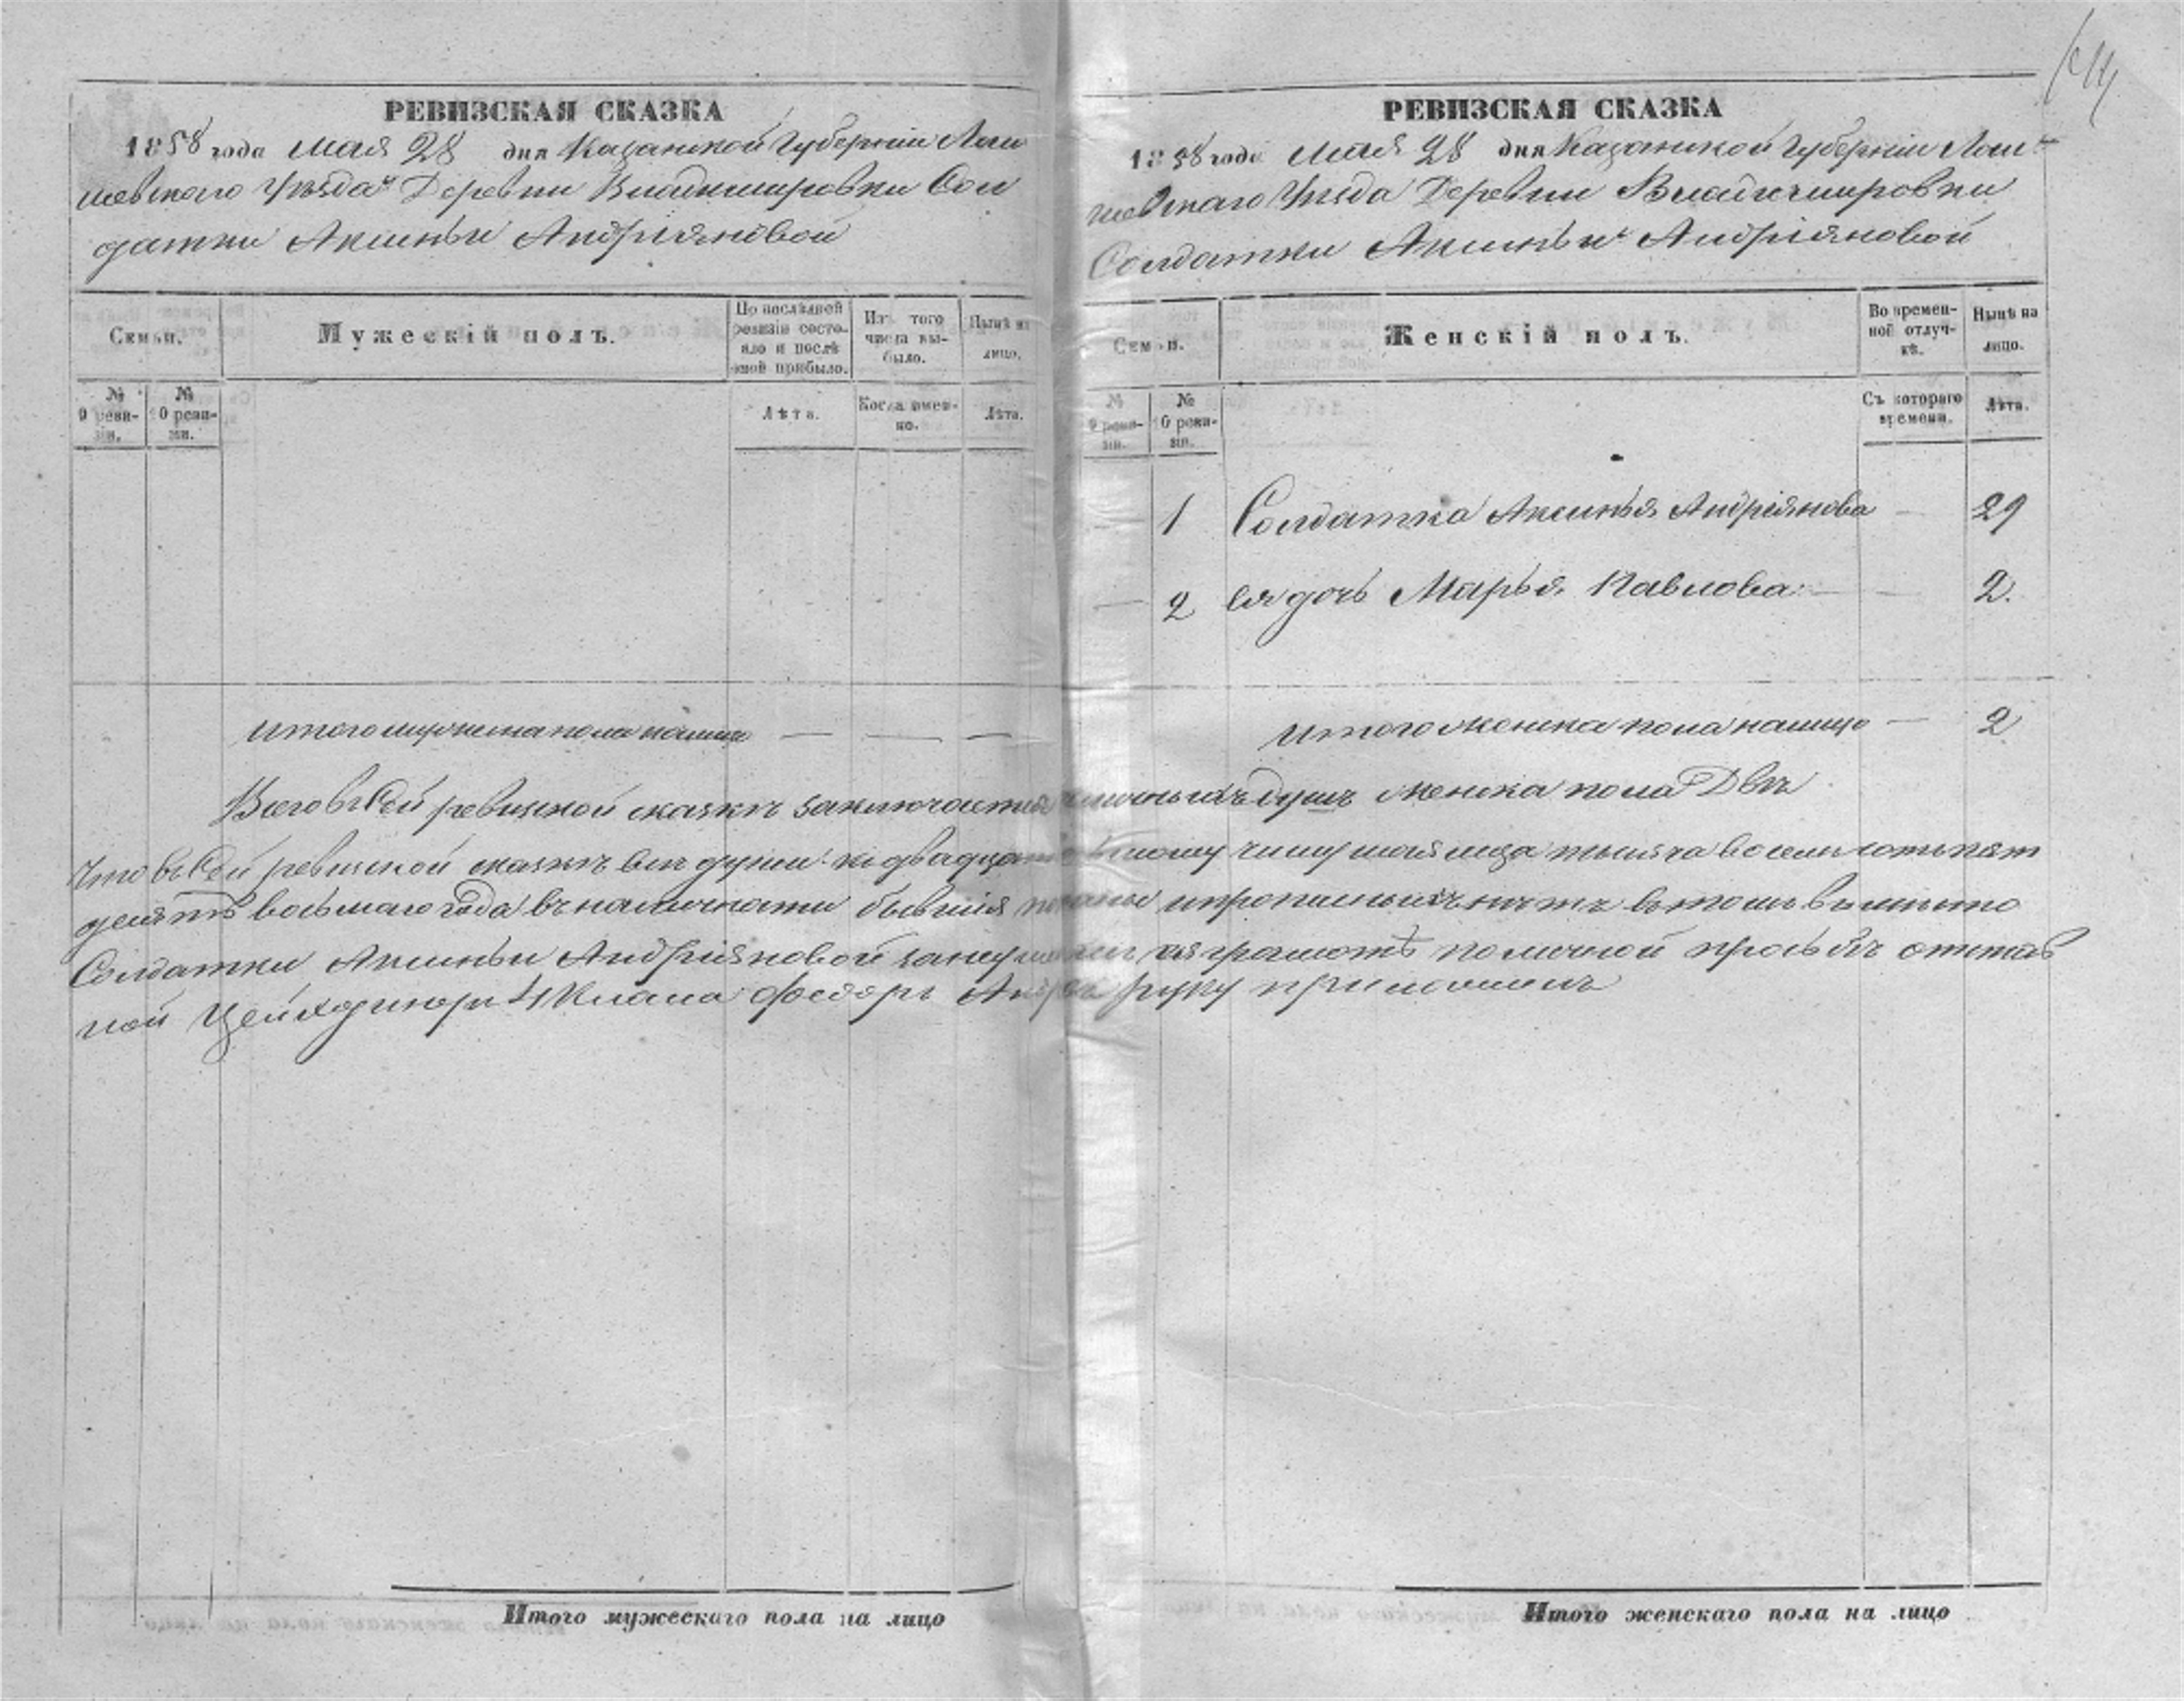 РЕВИЗСКАЯ СКАЗКА
1858 года мая 28 дня Казанской Губерніи Лаи
шевскаго Уѣзда Деревни Владимировки Сол
датки Аксиньи Андріяновой
Семьи.
Мужескій полъ.
По послѣдней ревизіи состояло и послѣ оной прибыло.
Изъ того числа выбыло.
Нынѣ на лицо.
№ 9 ревизіи.
№ 10 ревизіи.
Лѣта.
Когда именно.
Лѣта.
итого мужеска пола налицо — — —
РЕВИЗСКАЯ СКАЗКА
1858 года мая 28 дня Казанской Губерніи Лаи
шевскаго Уѣзда Деревни Владимировки
Солдатки Аксиньи Андріяновой
Семьи.
Женскій полъ.
Во временной отлучкѣ.
Нынѣ на лицо.
№ 9 ревизіи.
№ 10 ревизіи.
Съ котораго времени.
Лѣта.
— 1 Солдатка Аксинья Андріянова — 29
— 2 Ея дочь Марья Павлова — — 2.
итого женска пола налицо — 2
Всего въ сей ревизской сказкѣ заключается наличныхъ душъ женска пола Двѣ
Что въ сей ревизской сказкѣ всѣ души къ двадцать числу мая мца тысяча восемь сотъ пят
десятъ восьмаго года въ наличности бывшія и пропилныхъ нѣтъ въ томъ вмѣсто
Солдатки Аксиньи Андріяновой за неумѣніемъ грамотѣ по личной прозьбѣ отстав
ной Цейхдинеръ 4 Класа Федоръ руку приложилъ
Итого мужескаго пола на лицо
Итого женскаго пола на лицо